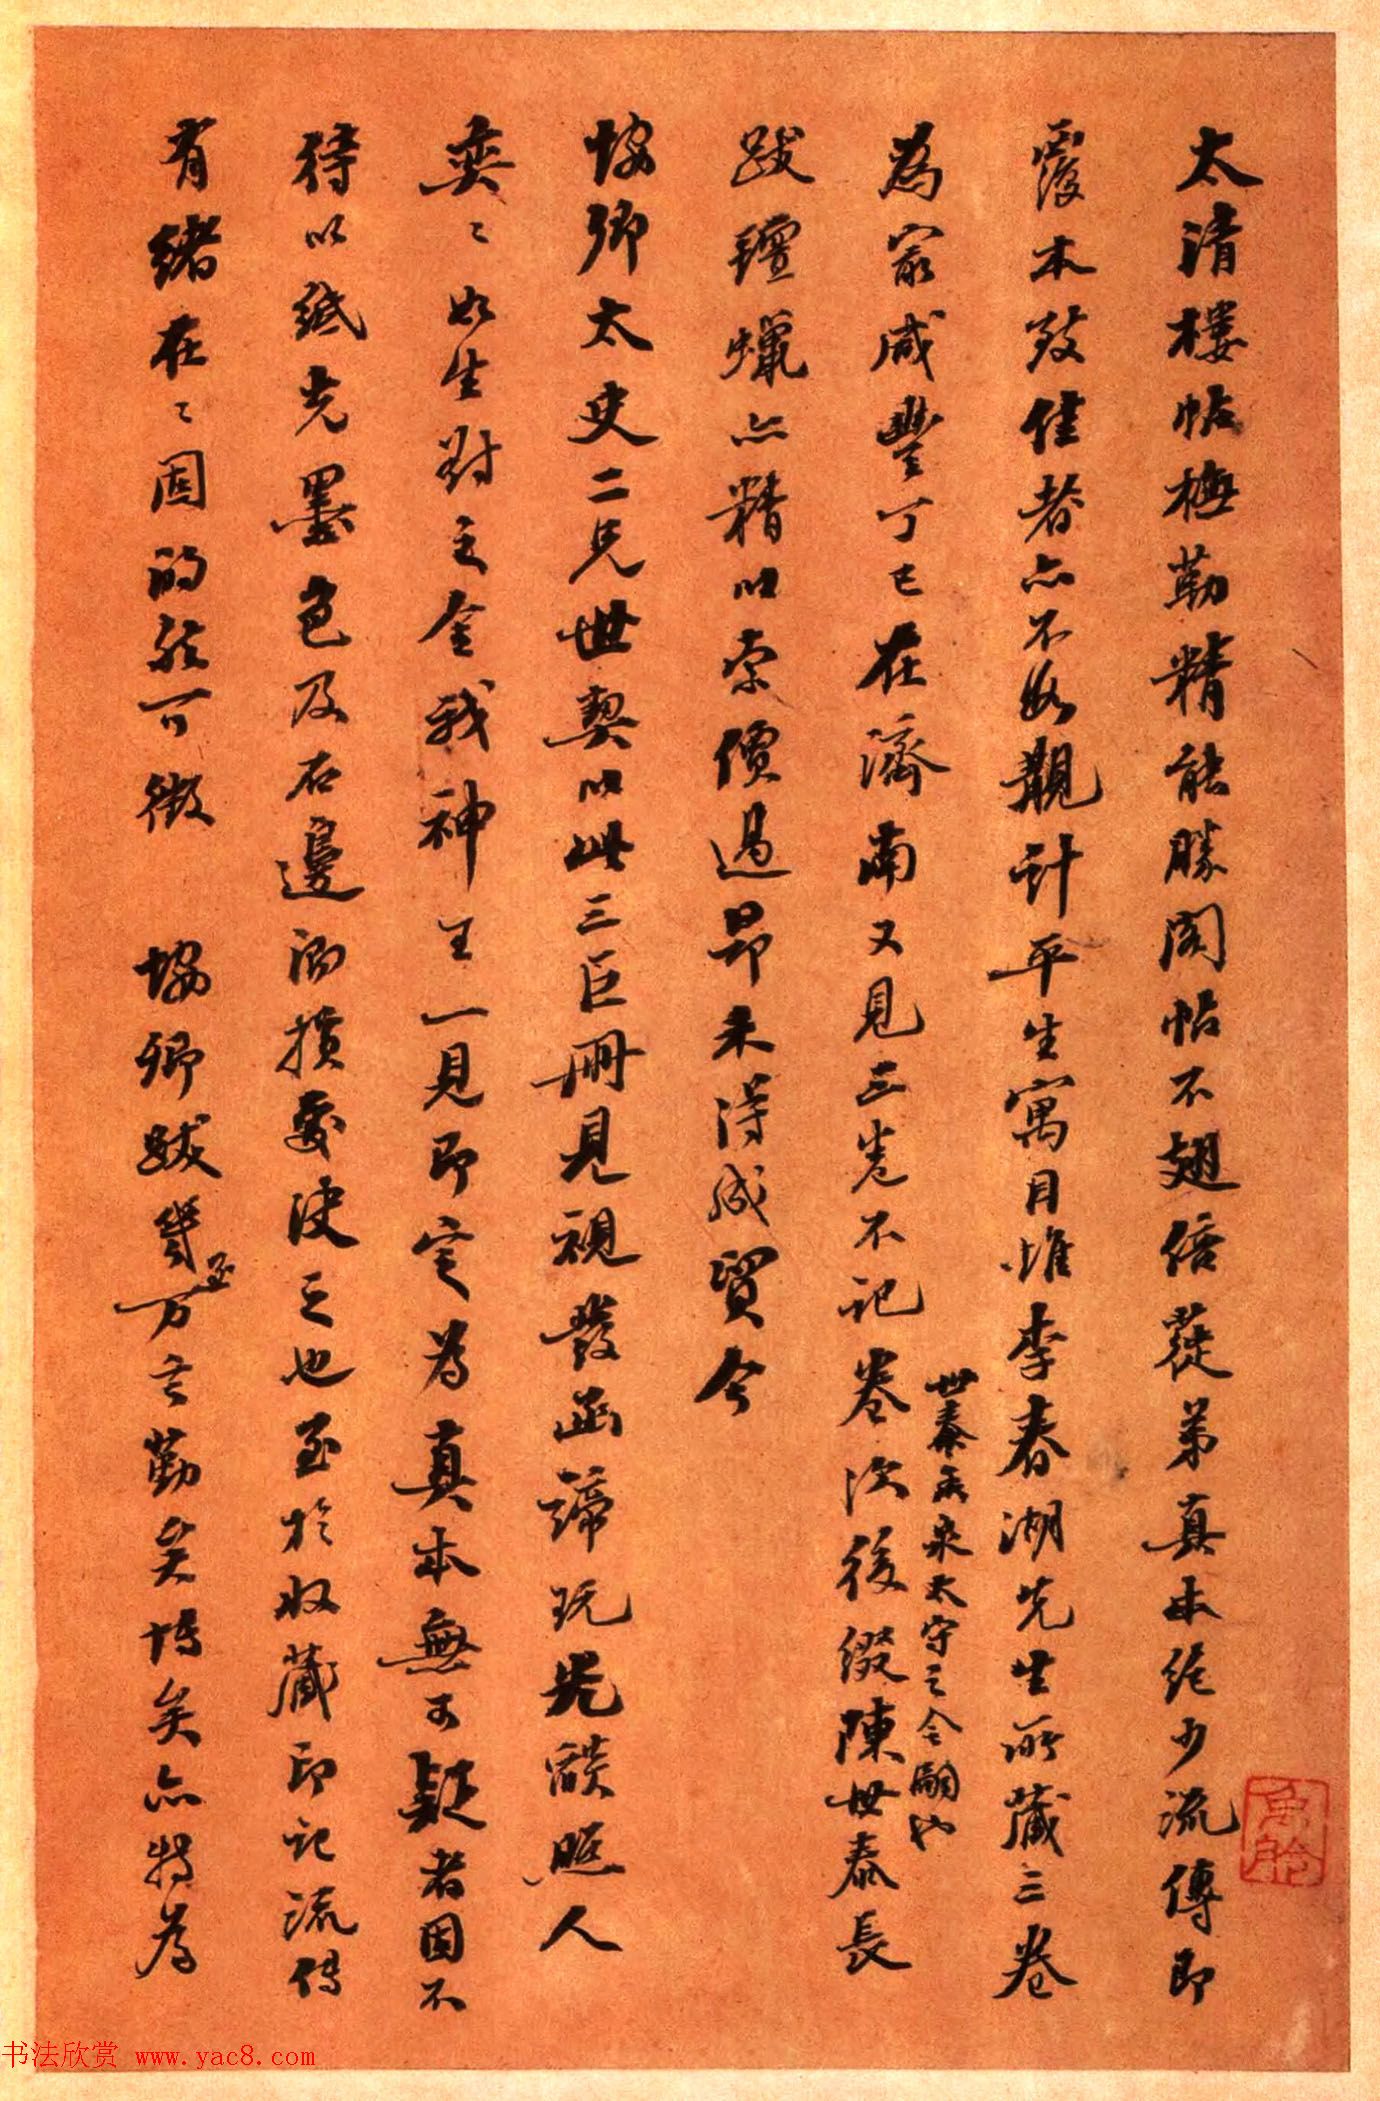 太清樓帖橅勒精能勝閣帖不翅倍蓰第真本絕少流傳即
覆本致佳者亦不易覯計平生寓目惟李春湖先生所藏三卷
為最咸豐丁巳在濟南又見三卷不記卷次後綴陳世泰長
世泰為泉太守之令嗣也
跋氊蠟亦精以索價過昂未得成貿今
協卿太史二兄世契以此三巨冊見視發函諦玩光燄照人
奕〻如生對之令我神王一見即定為真本無可疑者固不
待以紙光墨色及石邊泐損處決之也至於收藏印記流傳
有緒在〻固的然可徵 協卿跋幾至万言勤矣博矣亦特為
書法欣赏 www.yac8.com